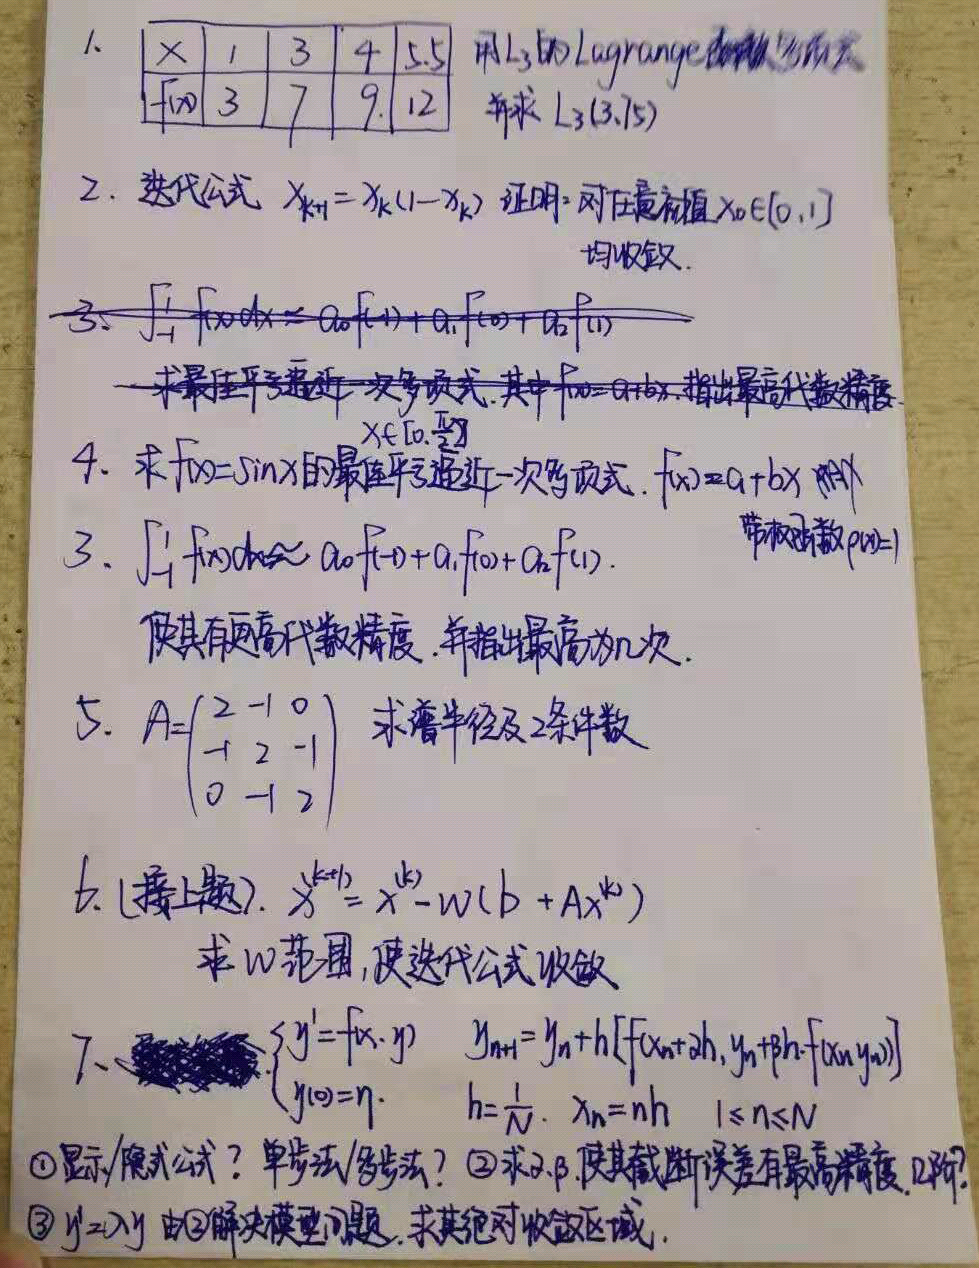 1. x 1 3 4 5.5 用L₃的Lagrange
f(x) 3 7 9. 12 并求 L₃(3.75)
2. 迭代公式 xₖ₊₁=xₖ(1-xₖ) 证明:对任意初值x₀∈[0,1]
均收敛.
3. ∫₋₁¹ f(x)dx≈a₀f(-1)+a₁f(0)+a₂f(1)
求最佳平方逼近一次多项式.其中f(x)=a+bx.指出最高代数精度.
x∈[0,π/2]
4. 求f(x)=sinx的最佳平方逼近一次多项式.f(x)=a+bx
带权函数ρ(x)=1
3. ∫₋₁¹ f(x)dx≈a₀f(-1)+a₁f(0)+a₂f(1).
使其有更高代数精度.并指出最高为几次.
5. A=(2 -1 0 求谱半径及2条件数
-1 2 -1
0 -1 2)
6.(接上题). x⁽ᵏ⁺¹⁾=x⁽ᵏ⁾-w(b+Ax⁽ᵏ⁾)
求w范围,使迭代公式收敛
7、{y'=f(x.y) yₙ₊₁=yₙ+h[f(xₙ+αh,yₙ+βh·f(xₙ,yₙ))]
y(0)=η. h=1/N. xₙ=nh 1≤n≤N
①显示/隐式公式?单步法/多步法?②求α.β.使其截断误差有最高精度.几阶?
③y'=λy 由②解决模型问题.求其绝对收敛区域.